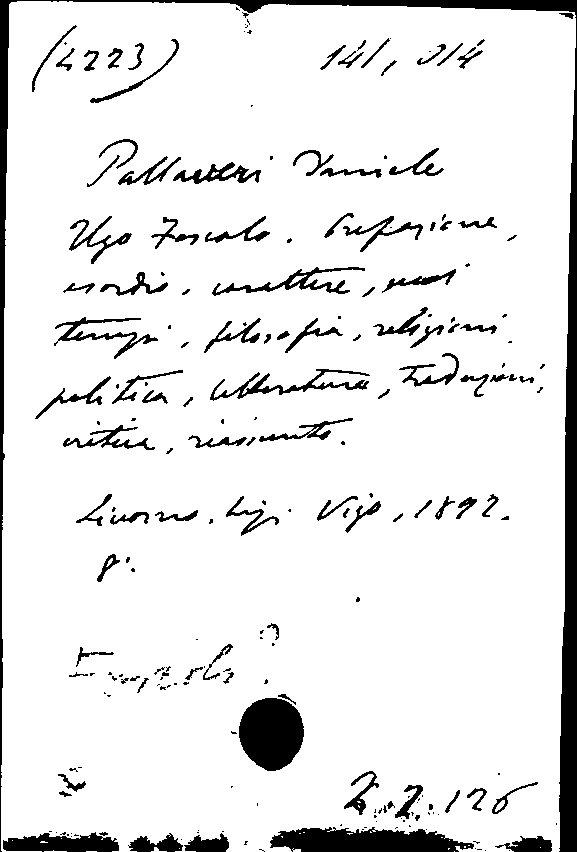 (4223) 141,014
Pallaveri Daniele
Ugo Foscolo. Prefazione,
esordio, carattere, suoi
tempi, filosofia, religioni
politica, letteratura, traduzioni,
critica, riassunto.
Livorno. Luigi Vigo, 1892.
8°.
?
2.2.126